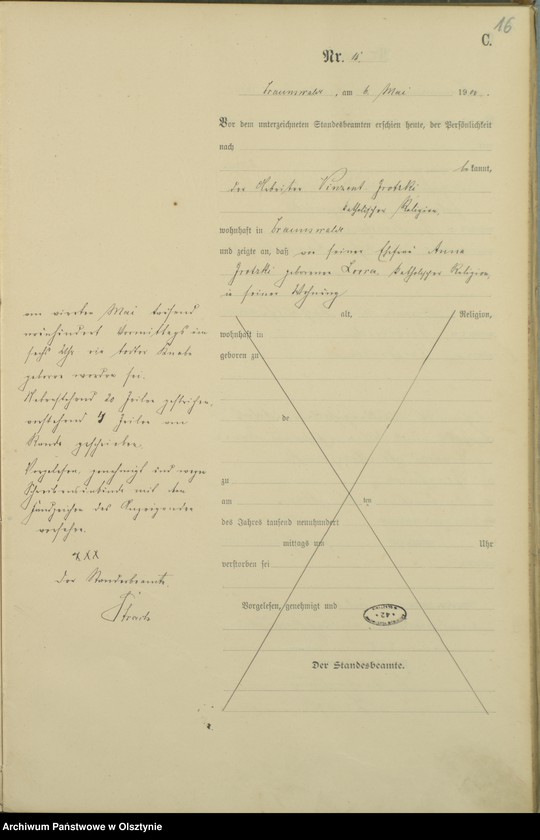 16
C.
Nr. 4.
Braunswalde, am 6. Mai 1910.
Vor dem unterzeichneten Standesbeamten erschien heute, der Persönlichkeit
nach
bekannt,
der Arbeiter Vinzent
katholischer Religion,
wohnhaft in Braunswalde
und zeigte an, daß von seiner Ehefrau Anna
geborenen katholischer Religion,
in seiner Wohnung
alt, Religion,
wohnhaft in
geboren zu
de
zu
am ten
des Jahres tausend neunhundert
mittags um Uhr
verstorben sei
Vorgelesen, genehmigt und
Der Standesbeamte.
am vierten Mai tausend
neunhundert Vormittags um
sechs Uhr ein toter Knabe
geboren worden sei.
Nebenstehend 20 Zeilen gestrichen,
vorstehend 4 Zeilen am
Rande geschrieben.
Vorgelesen, genehmigt und wegen
Schreibensunkunde mit dem
Handzeichen des Anzeigenden
versehen.
XXX
Der Standesbeamte.
Archiwum Państwowe w Olsztynie